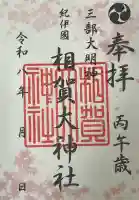 奉拝
丙午歳
三部大明神
紀伊國
相賀大神社
相賀
神社
令和八年 月 日